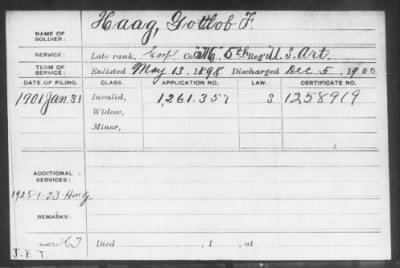 NAME OF SOLDIER: Haag, Gottlob F.
SERVICE: Late rank, Corpl Co. "M", 5th Reg't U.S. Art.
TERM OF SERVICE: Enlisted May 13, 1898 Discharged Dec 5, 1900
DATE OF FILING. CLASS. APPLICATION NO. LAW. CERTIFICATE NO.
1901 Jan 31 Invalid, 1,261,357 3 1258919
Widow,
Minor,
ADDITIONAL SERVICES:
1925-1-23
REMARKS:
Died , 1 , at
J.E.T